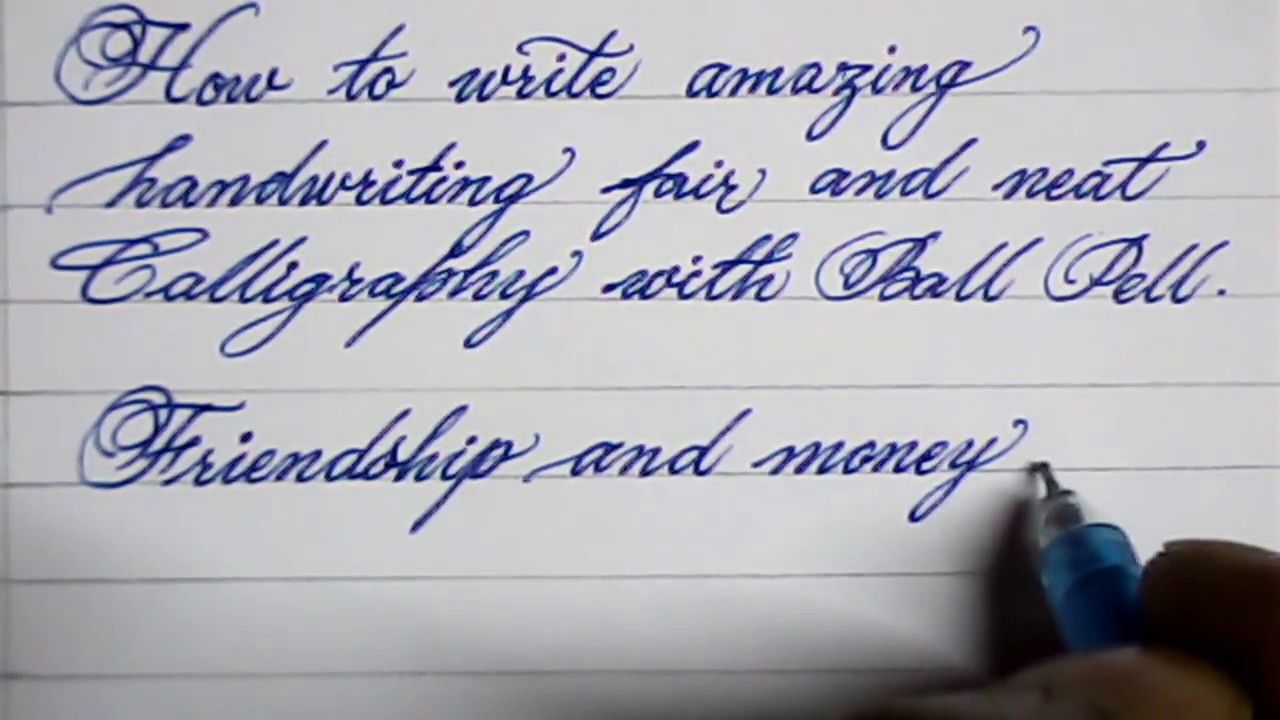 How to write amazing
handwriting fair and neat
Calligraphy with Ball Pell.
Friendship and money